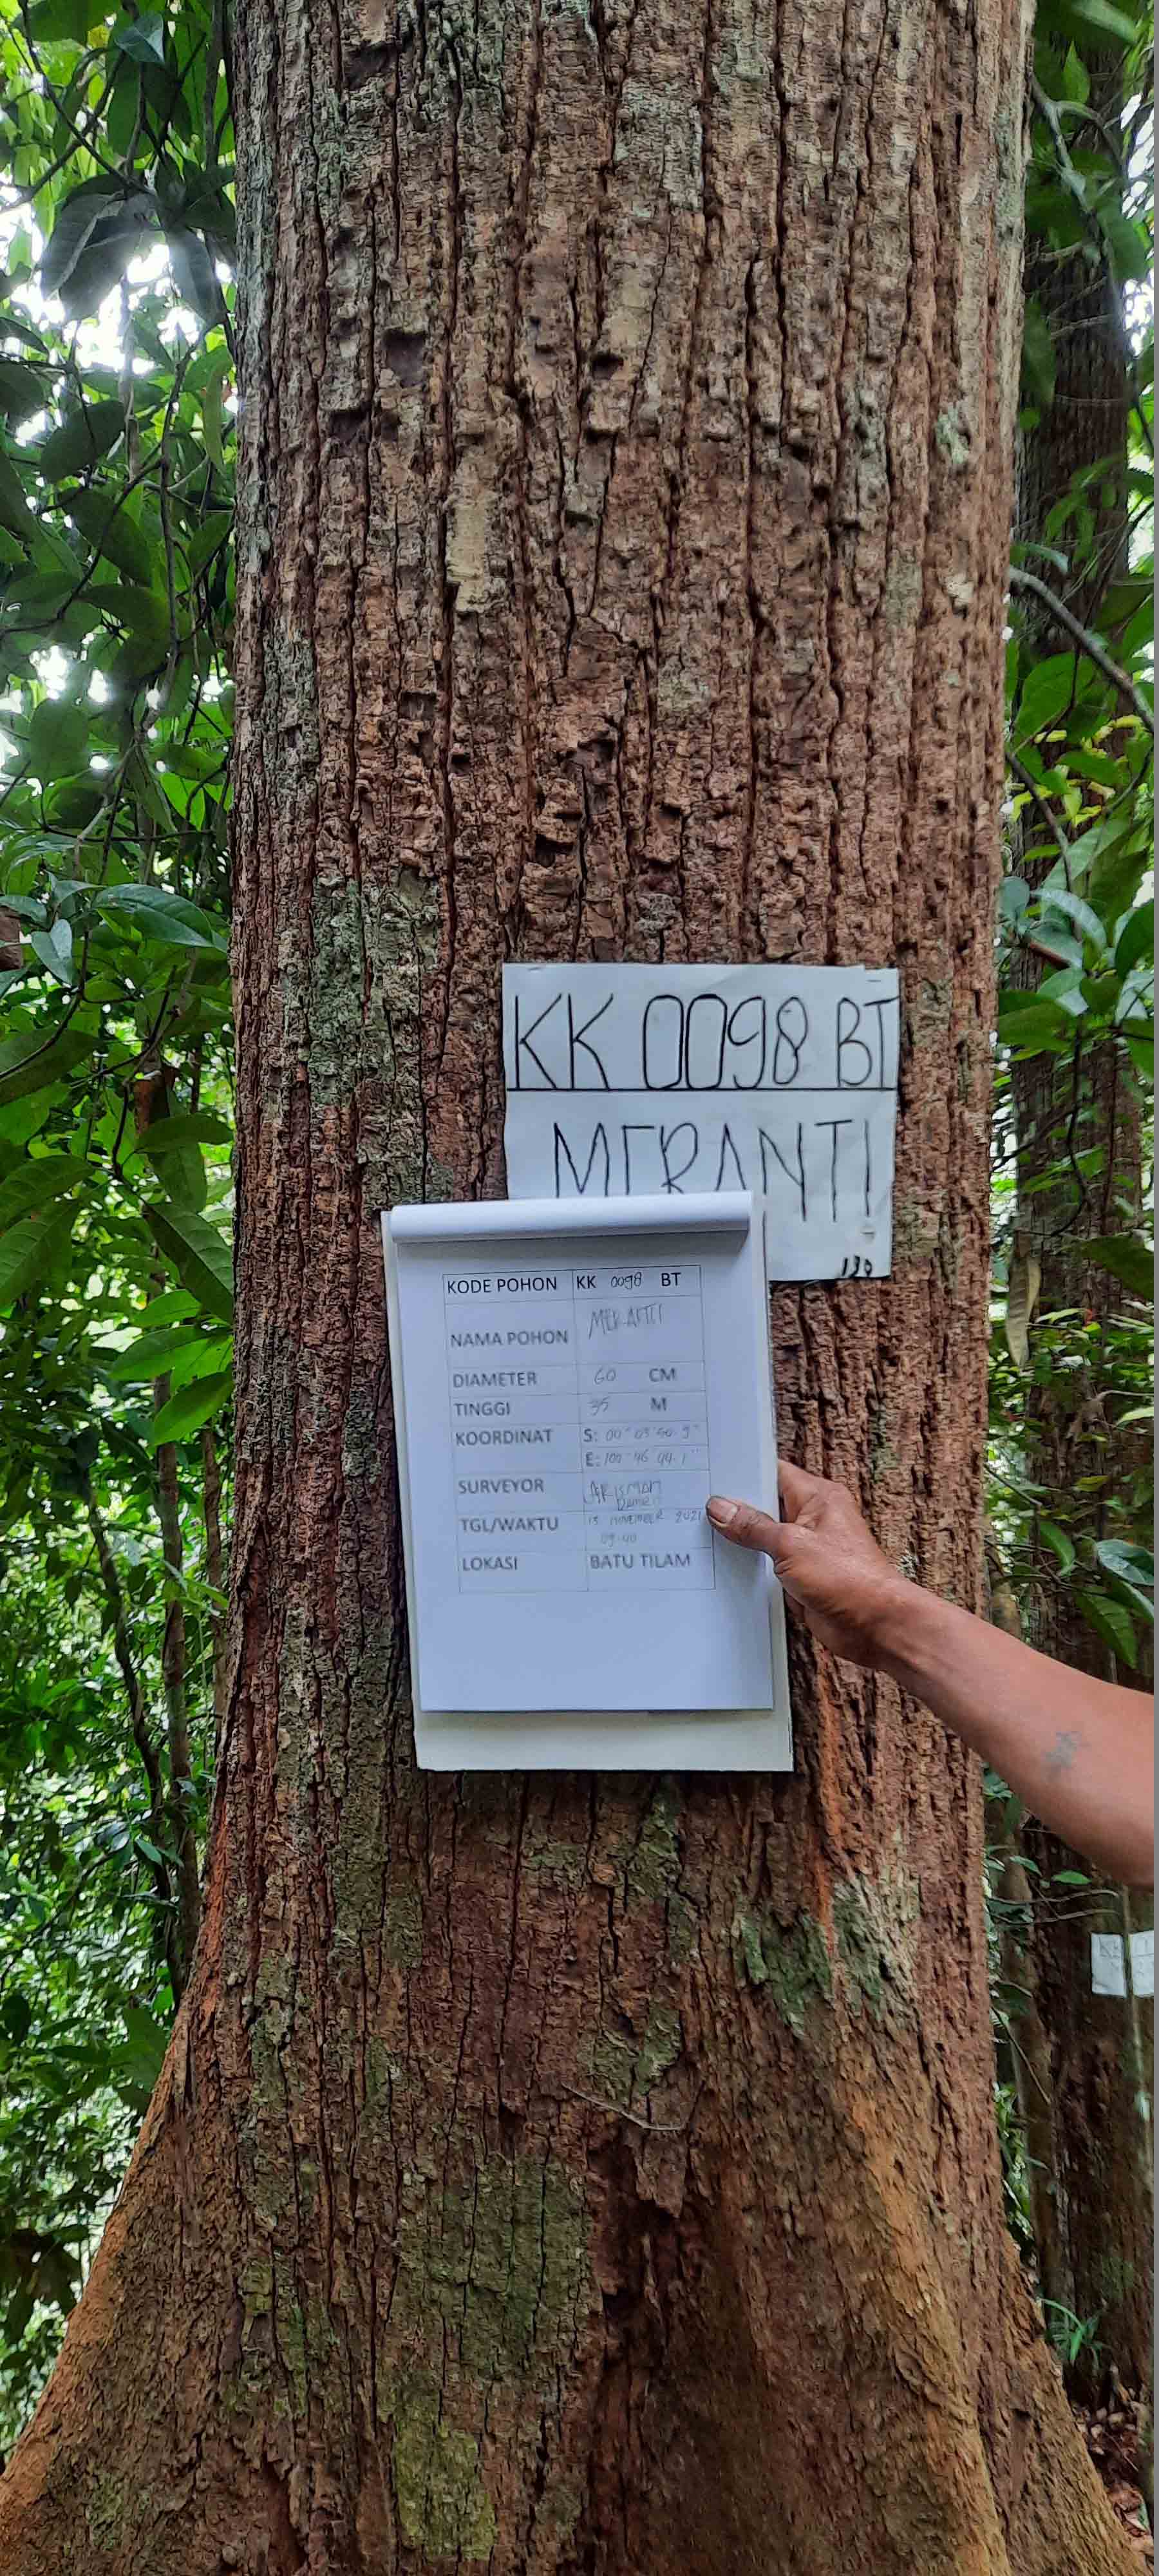 KK 0098 BT
MERANTI
130
KODE POHON KK 0098 BT
NAMA POHON MERANTI
DIAMETER 60 CM
TINGGI 35 M
KOORDINAT S: 00° 03' 50.9"
E: 100° 46' 44.1"
SURVEYOR ARISMAN
TGL/WAKTU 13 NOVEMBER 2021
09.40
LOKASI BATU TILAM